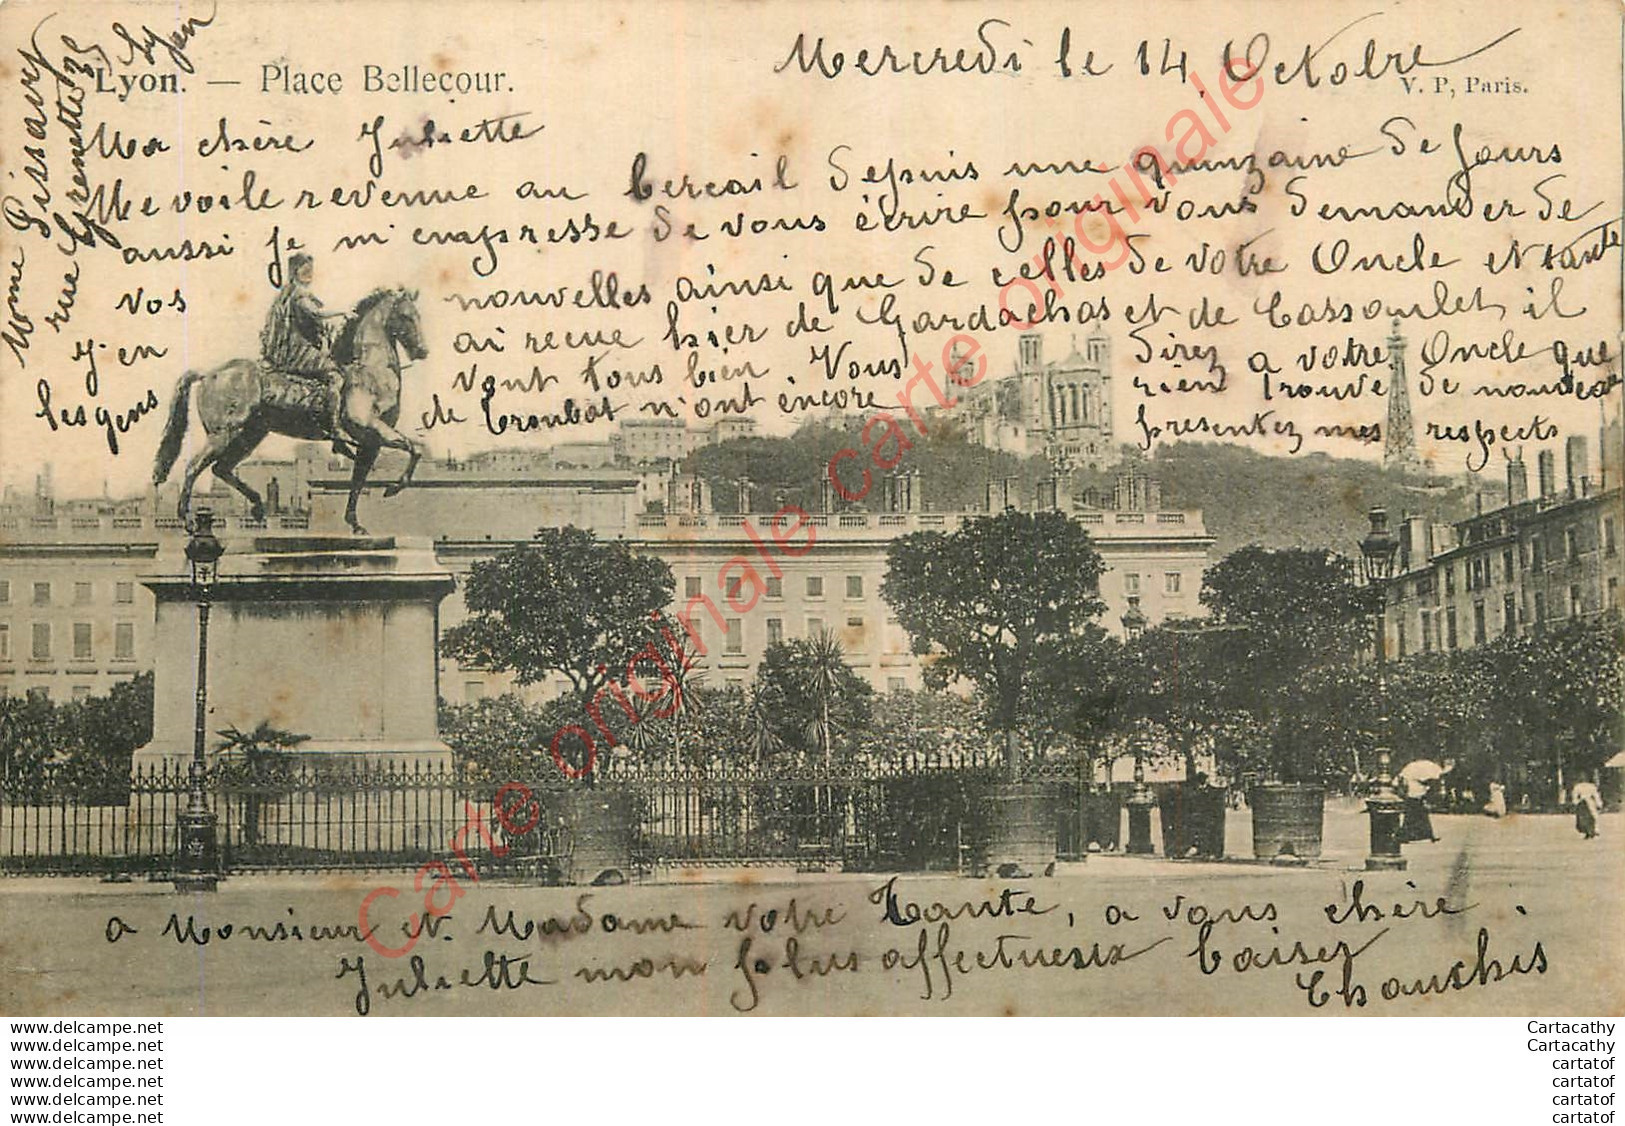 Lyon. — Place Bellecour.
V. P, Paris.
Mercredi le 14 Octobre
Ma chère Juliette
Me voile revenue au bercail depuis une quinzaine de jours
aussi je m'empresse de vous écrire pour vous demander de
vos nouvelles ainsi que de celles de votre Oncle et tante
J'en ai reçue hier de Gardachas et de Cassoulet, il
vont tous bien. Vous direz a votre Oncle que
les gens de Croubat n'ont encore rien trouvé de nouveau
presentez mes respects
a Monsieur et Madame votre Tante, a vous chère
Juliette mon plus affectueux baiser
Mme Pissavy
rue Grenette 35
Lyon
Carte originale carte originale carte originale
www.delcampe.net
www.delcampe.net
www.delcampe.net
www.delcampe.net
www.delcampe.net
www.delcampe.net
Cartacathy
Cartacathy
cartatof
cartatof
cartatof
cartatof